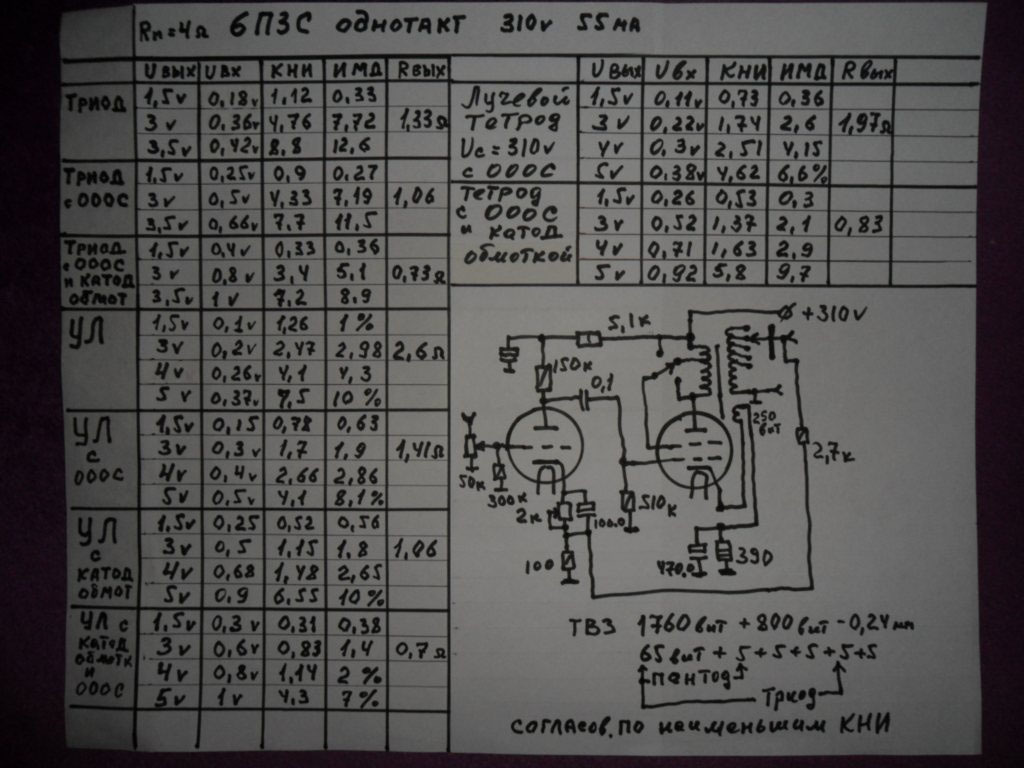 Rн=4Ω 6П3С ОДНОТАКТ 310v 55мА
UВЫХ UВХ КНИ ИМД RВЫХ
ТРИОД
1,5v 0,18v 1,12 0,33
3v 0,36v 4,76 7,72 1,33Ω
3,5v 0,42v 8,8 12,6
ТРИОД
с ОООС
1,5v 0,25v 0,9 0,27
3v 0,5v 4,33 7,19 1,06
3,5v 0,66v 7.7 11,5
ТРИОД
с ОООС
и КАТОД
ОБМОТ
1,5v 0,4v 0,33 0,36
3v 0,8v 3,4 5,1 0,73Ω
3,5v 1v 7,2 8,9
УЛ
1,5v 0,1v 1,26 1%
3v 0,2v 2,47 2,98 2,6Ω
4v 0,26v 4,1 4,3
5v 0,37v 7,5 10%
УЛ
с
ОООС
1,5v 0,15 0,78 0,63
3v 0,3v 1,7 1,9 1,41Ω
4v 0,4v 2,66 2,86
5v 0,5v 4,1 8,1%
УЛ
с
КАТОД
ОБМОТ
1,5v 0,25 0,52 0,56
3v 0,5 1,15 1,8 1,06
4v 0,68 1,48 2,65
5v 0,9 6,55 10%
УЛ с
КАТОД
ОБМОТК
и
ОООС
1,5v 0,3v 0,31 0,38
3v 0,6v 0,83 1,4 0,7Ω
4v 0,8v 1,14 2%
5v 1v 4,3 7%
UВЫХ UВХ КНИ ИМД RВЫХ
Лучевой
ТЕТРОД
Uс=310v
с ОООС
1,5v 0,11v 0,73 0,36
3v 0,22v 1,74 2,6 1,97Ω
4v 0,3v 2,51 4,15
5v 0,38v 4,62 6,6%
ТЕТРОД
с ОООС
и КАТОД
ОБМОТКОЙ
1,5v 0,26 0,53 0,3
3v 0,52 1,37 2,1 0,83
4v 0,71 1,63 2,9
5v 0,92 5,8 9,7
5,1к
+310v
150к
0,1
250
вит
2,7к
50к
300к
2к
100.0
510к
100
470.0
390
ТВЗ 1760вит + 800вит - 0,24мм
65вит + 5+5+5+5+5
ПЕНТОД
ТРИОД
СОГЛАСОВ. ПО НАИМЕНЬШИМ КНИ